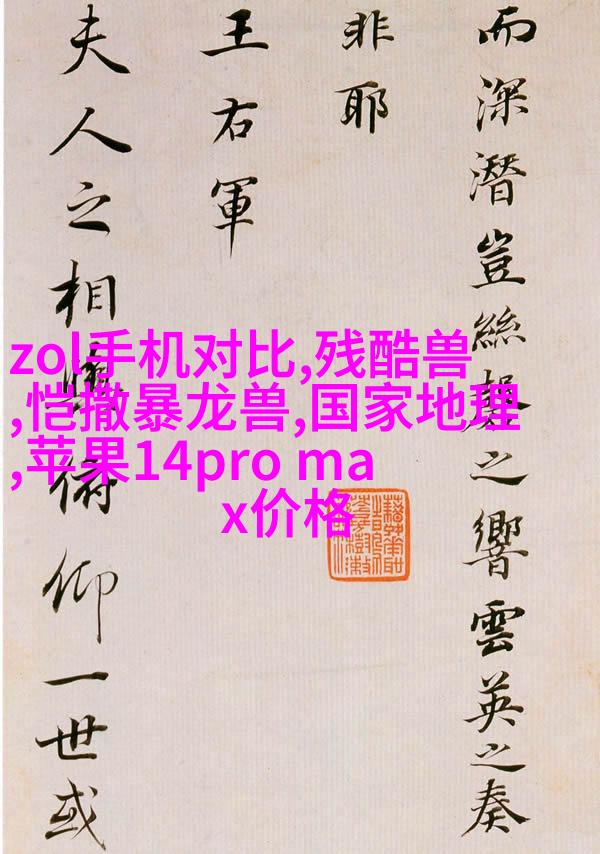 而深潛豈絲磬之響雲英之奏
非耶
王右軍
夫人之相與俯仰一世或
zol手机对比,残酷兽
,恺撒暴龙兽,国家地理
,苹果14pro ma
x价格